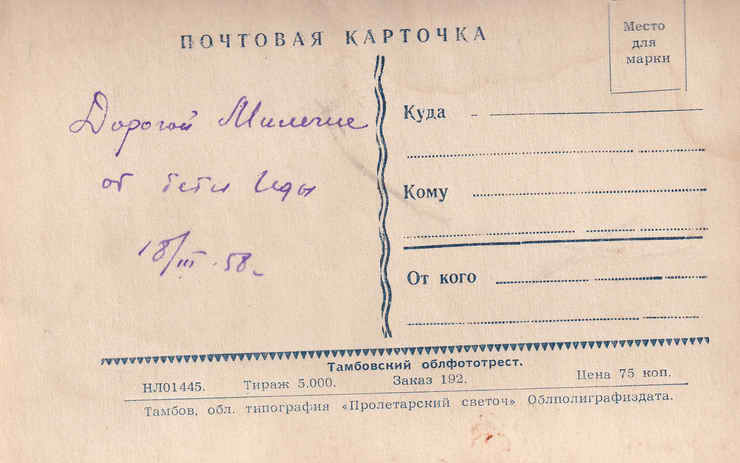 ПОЧТОВАЯ КАРТОЧКА
Место
для
марки
Дорогой Милочке
от тети Иды
18/III 58 г.
Куда
Кому
От кого
Тамбовский облфототрест.
НЛ01445. Тираж 5.000. Заказ 192. Цена 75 коп.
Тамбов, обл. типография «Пролетарский светоч» Облполиграфиздата.